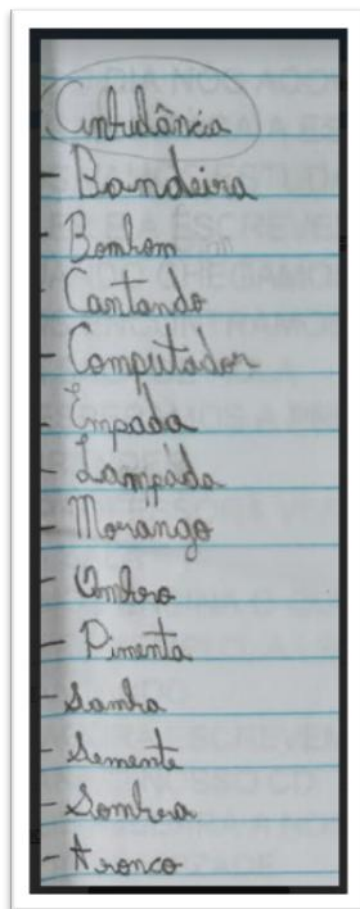 Ambulância
- Bandeira
- Bombom
- Cantando
- Computador
- Empada
- Lampada
- Morango
- Ombro
- Pimenta
- Samba
- Semente
- Sombra
- Tronco